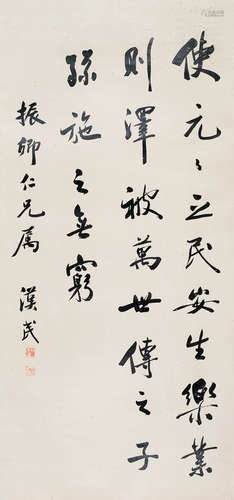 使元〻之民安生樂業
則澤被萬世傳之子
孫施之無窮
振卿仁兄屬 漢民